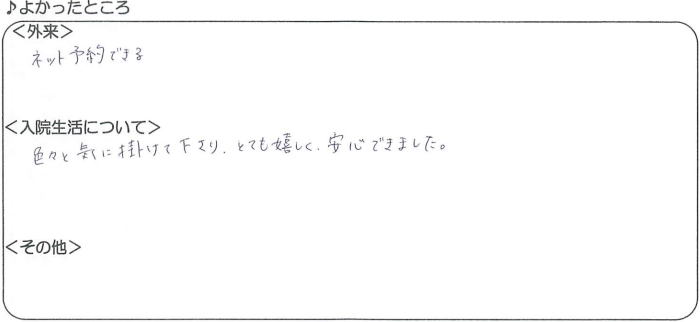 ♪よかったところ
＜外来＞
ネット予約できる
＜入院生活について＞
色々と気に掛けて下さり、とても嬉しく、安心できました。
＜その他＞